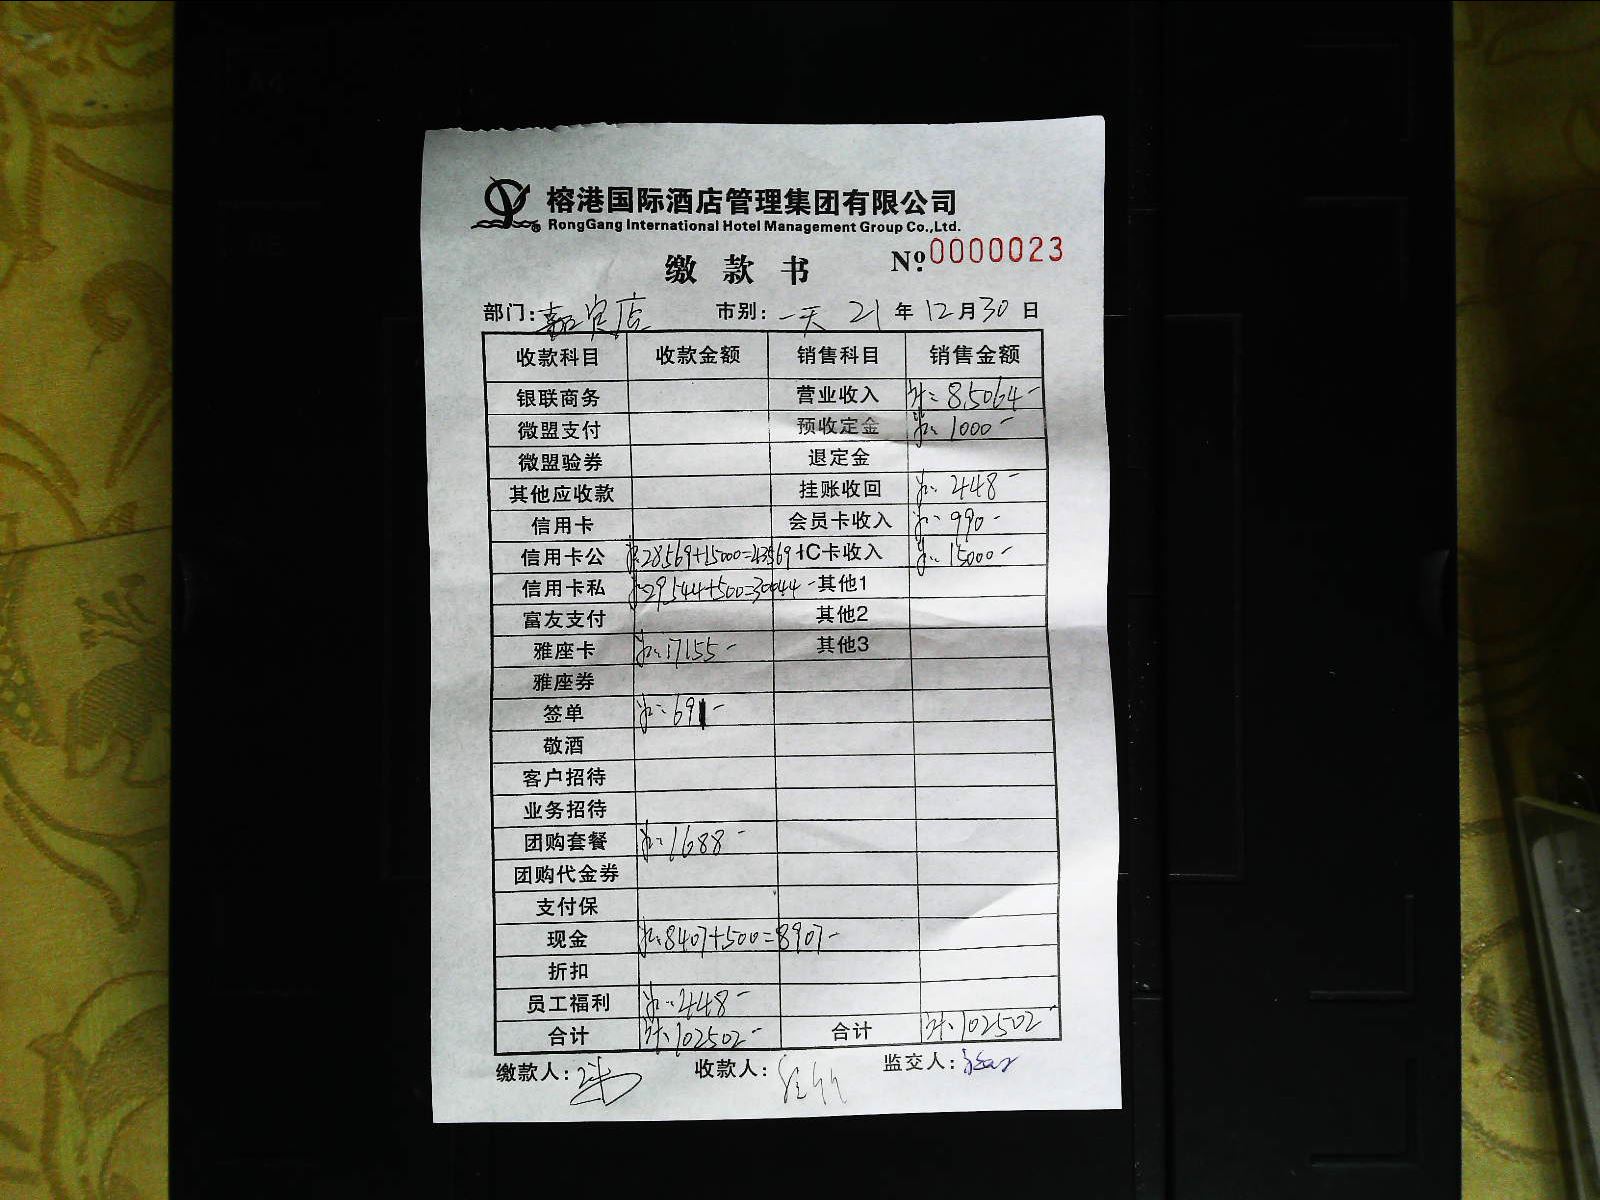 榕港国际酒店管理集团有限公司
RongGang International Hotel Management Group Co.,Ltd.
缴款书 Nº.0000023
部门: 店 市别: 一天 21年12月30日
收款科目 收款金额 销售科目 销售金额
银联商务 营业收入 85064-
微盟支付 预收定金 1000-
微盟验券 退定金
其他应收款 挂账收回 448-
信用卡 会员卡收入 990-
信用卡公 28569+15000=43569 IC卡收入 15000-
信用卡私 29544+500=30044- 其他1
富友支付 其他2
雅座卡 17155- 其他3
雅座券
签单 691-
敬酒
客户招待
业务招待
团购套餐 1688-
团购代金券
支付保
现金 8407+500=8907-
折扣
员工福利 448-
合计 102502- 合计 102502-
缴款人: 收款人: 监交人: